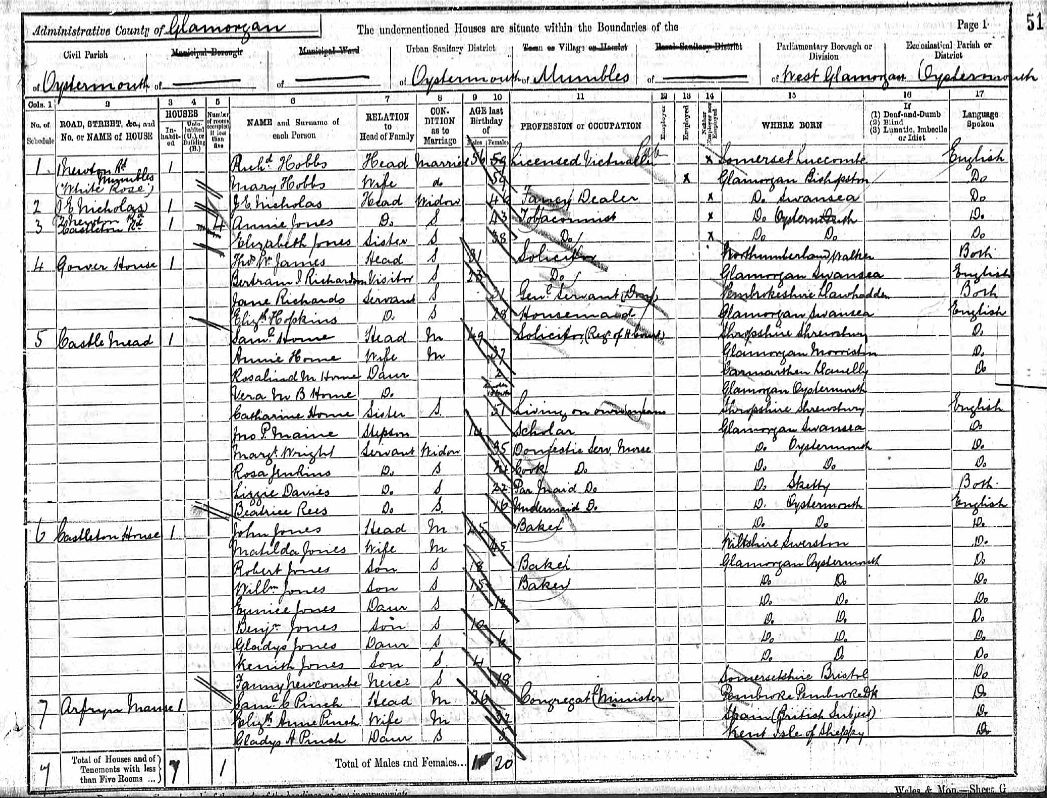 51
Administrative County of Glamorgan The undermentioned Houses are situate within the Boundaries of the Page 1
Civil Parish Municipal Borough Municipal Ward Urban Sanitary District Town or Village or Hamlet Rural Sanitary District Parliamentary Borough or Division Ecclesiastical Parish or District
of Oystermouth of of of Oystermouth of Mumbles of of West Glamorgan of Oystermouth
Cols. 1 2 3 4 5 6 7 8 9 10 11 12 13 14 15 16 17
No. of Schedule ROAD, STREET, &c., and No. or NAME of HOUSE HOUSES Inhabited Uninhabited (U.) or Building (B.) Number of rooms occupied if less than five NAME and Surname of each Person RELATION to Head of Family CONDITION as to Marriage AGE last Birthday of Males Females PROFESSION or OCCUPATION Employer Employed Neither WHERE BORN If (1) Deaf-and-Dumb (2) Blind (3) Lunatic, Imbecile or Idiot Language Spoken
1 Newton Rd Mumbles (White Rose) 1 Richd Hobbs Head Married 56 Licensed Victualler x Somerset Luccombe English
Mary Hobbs Wife do 59 x Glamorgan Bishpston Do
2 J E Nicholas 1 J E Nicholas Head Widow 46 Fancy Dealer x Do Swansea Do
3 Newton Rd Castleton 1 4 Annie Jones Do S 43 Tobacconist x Do Oystermouth Do
Elizabeth Jones Sister S 38 Do x Do Do Do
4 Gower House 1 Thos W James Head S 31 Solicitor Northumberland Walker Both
Bertram J Richardson Visitor S 28 Do Glamorgan Swansea English
Jane Richards Servant S 21 Genl Servant (Dom) Pembrokeshire Llawhadden Both
Elizth Hopkins D. S 18 Housemaid Glamorgan Swansea English
5 Castle Mead 1 Saml Home Head M 49 Solicitor Shropshire Shrewsbury D.
Annie Home Wife M 37 Glamorgan Morriston D.
Rosalind M Home Daur Carmarthen Llanelly Do
Vera M B Home D. Glamorgan Oystermouth
Catharine Home Sister S. 51 Living on own means Shropshire Shrewsbury English
Jno P Maine Stepson 14 Scholar Glamorgan Swansea D.
Margt Wright Servant Widow 35 Domestic Serv Nurse Do Oystermouth D.
Rosa Jenkins D. S Cook Do Do Do Do
Lizzie Davies D. S 22 Par Maid Do D. Sketty Both
Beatrice Rees D. S 16 Undermaid D. D. Oystermouth English
6 Castleton House 1 John Jones Head M 45 Baker D. Do D.
Matilda Jones Wife M 45 Wiltshire D.
Robert Jones Son S 18 Baker Glamorgan Oystermouth Do
Willm Jones Son S 15 Baker D. Do D.
Eunice Jones Daur S 12 D. Do Do
Benjn Jones Son S 10 D. D. Do
Gladys Jones Daur S 6 D. Do D.
Kenrith Jones Son S. 4 D. Do Do
Fanny Newcombe Neice S 18 Somersetshire Bristol Do
7 Arfryn Manse 1 Saml C Pinch Head M 36 Congregatl Minister Pembroke Pembroke Dk D.
Elizth Anne Pinch Wife M 37 Spain (British Subject) D.
Gladys A Pinch Daur S Kent Isle of Sheppy Do
7 Total of Houses and of Tenements with less than Five Rooms ... 7 1 Total of Males and Females... 11 20
Wales & Mon.—Sheet G